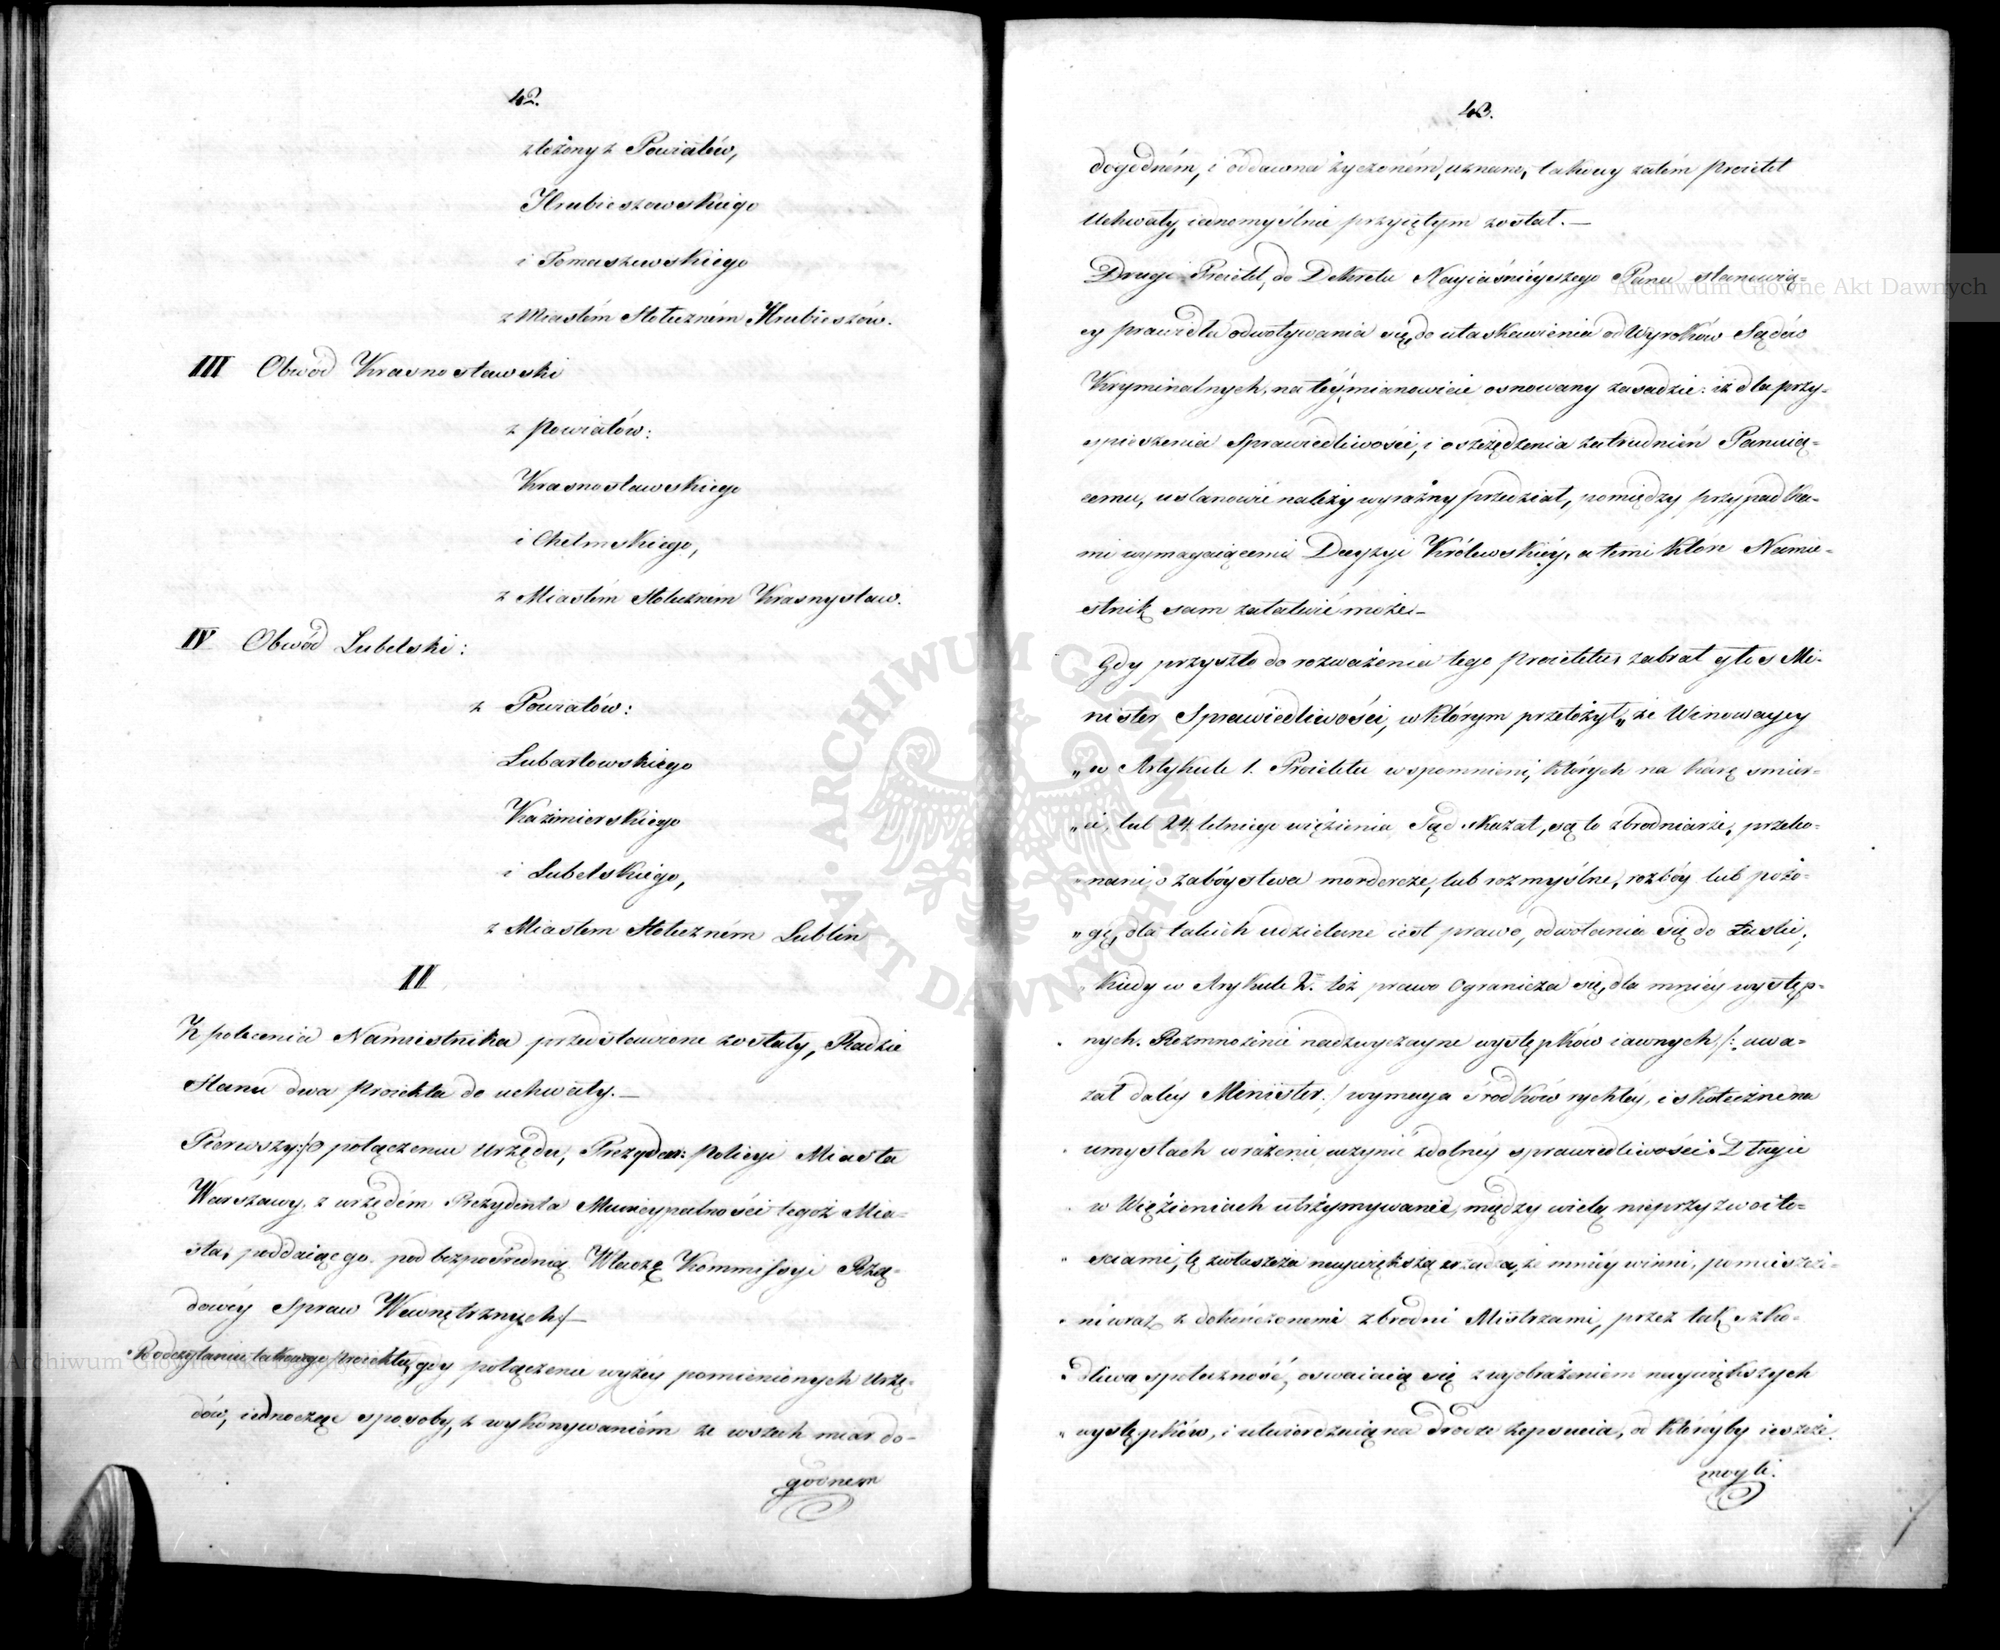 42.
złożony z Powiatów,
Hrubieszowskiego
i Tomaszowskiego
z Miastem Stołeczném Hrubieszów.
III Obwód Krasnostawski
z Powiatów:
Krasnostawskiego
i Chełmskiego,
z Miastém Stołeczném Krasnystaw.
IV Obwód Lubelski:
z Powiatów:
Lubartowskiego
Kaźimierskiego
i Lubelskiego,
z Miastem Stołeczném Lublin
II
Z polecenia Namiestnika przedstawione zostały, Radzie
Stanu dwa Proiekta do uchwały. —
Pierwszy:/ O połączeniu Urzędu, Prezyden: Policyi Miasta
Warszawy, z urzędém Prezydenta Municypalności tegoż Mia-
sta, poddaiącego pod bezpośrednią Władzę Kommissyi Rzą-
dowéy Spraw Wewnętrznych/—
Po odczytaniu takowego Proiektu, gdy połączenie wyżéy pomienionych Urzę-
dów, iednoczące sposoby, z wykonywaniém ze wszech miar do-
godnem
43.
dogodném, i oddawna życzoném, uznane, takowy zatém Proiekt
Uchwały, iednomyślnie przyiętym został. —
Drugi Proiekt, do Dekretu Nayiaśnieyszego Pana stanowią-
cy prawidła odwoływania się, do ułaskawienia od Wyroków Sądów
Kryminalnych, na téy mianowicie osnowany zasadzie: iż dla przy-
spieszenia Sprawiedliwości, i oszczędzenia zatrudnień Panuią-
cemu, ustanowić należy wyraźny przedział, pomiędzy przypadka-
mi wymagaiącemi Decyzyi Królewskiéy, a témi które Namie-
stnik sam załatwić może. —
Gdy przyszło do rozważenia tego Proiektu, zabrał głos Mi-
nister Sprawiedliwości, w którym przełożył „że Winowaycy
„w Artykule 1. Proiektu wspomnieni, których na karę śmier-
„ci, lub 24 letniego więzienia Sąd skazał, są to zbrodniarze, przeko-
„nani, o zabóystwa mordercze, lub rozmyślne, rozbóy lub pożo-
„gę, dla takich udzielone iest prawo, odwołania się do Łaski;
„Kiedy w Artykule 2. toż prawo ogranicza się, dla mniéy występ-
nych. Rozmnożenie nadzwyczayne występków iawnych /: uwa-
żał daléy Minister :/ wymaga środków rychłéy, i skuteczne na
umysłach wrażenie uczynić zdolnéy sprawiedliwości: Długie
w Więzieniach utrzymywanie, między wielą nieprzyzwoito-
ściami, tę zwłaszcza naywiększą zrządza, że mniéy winni, pomieszcze-
ni wraz z dokończonemi zbrodni Mistrzami, przez tak szko-
dliwą społeczność, oswaiaią się z wyobrażeniem naywiększych
„występków, i utwierdzaią na drodze zepsucia, od któréyby ieszcze
mogli.
Archiwum Główne Akt Dawnych
Archiwum Główne Akt Dawnych
ARCHIWUM GŁÓWNE AKT DAWNYCH